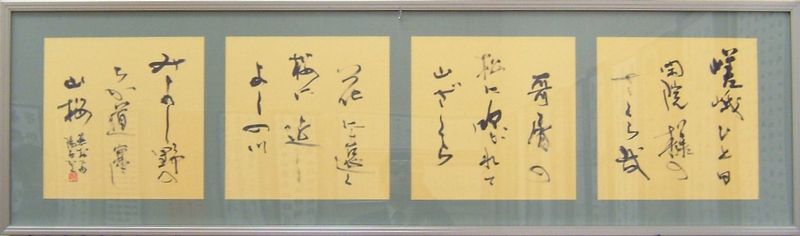 嵯峨ひと日
閑院様の
さくら哉
哥屑の
松に吹かれて
山ざくら
花に遠く
桜に近し
よしの川
みよし野の
ちか道寒し
山桜
蕪村句